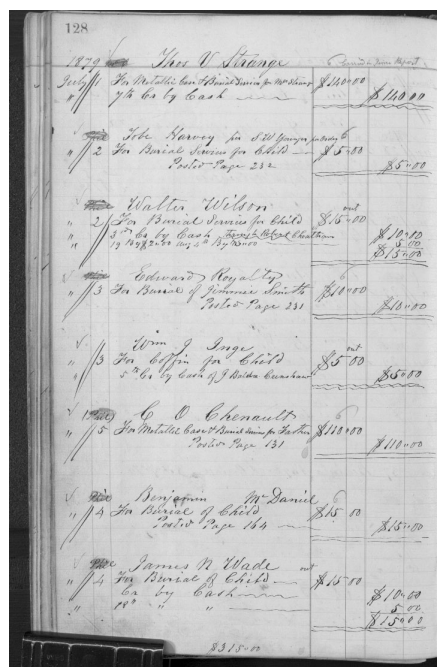 128
1879 Thos V Strange
July 1 For Metallic Case & Burial Service for Mr Strange $140.00
" 7th Cr by Cash $140.00
" Tobe Harvey for S W
" 2 For Burial Service for Child $5.00
Posted Page 232 $5.00
Walter Wilson out
" 2 For Burial Service for Child $15.00
" 3rd Cr by Cash $10.00
" 5.00
$15.00
Edward Royalty
" 3 For Burial of Jimmie Smith $10.00
Posted Page 231 $10.00
Wm J Inge out
" 3 For Coffin for Child $5.00
5th Cr by Cash of J $5.00
C O Chenault
" 5 For Metallic Case & Burial Service for Father $110.00
Posted Page 131 $110.00
Benjamin McDaniel
" 4 For Burial of Child $15.00
Posted Page 164 $15.00
James N Wade out
" 4 For Burial of Child $15.00
" Cr by Cash $10.00
" 18th " " 5.00
$15.00
$315.00